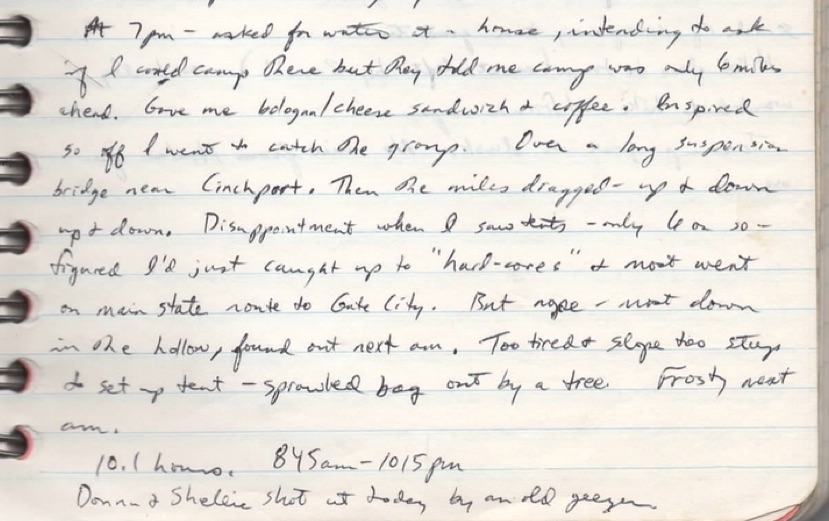 At 7pm - asked for water at a house, intending to ask
if I could camp there but they told me camp was only 6 miles
ahead. Gave me bologna/cheese sandwich & coffee. Inspired
so off I went to catch the group. Over a long suspension
bridge near Clinchport. Then the miles dragged - up & down
up & down. Disappointment when I saw tents - only 6 or so -
figured I'd just caught up to "hard-cores" & most went
on main state route to Gate City. But nope - most down
in the hollow, found out next am. Too tired & slope too steep
to set up tent - sprawled bag out by a tree. Frosty next
am.
10.1 hours. 845am-1015pm
Donna & Shellie shot at today by an old geezer.